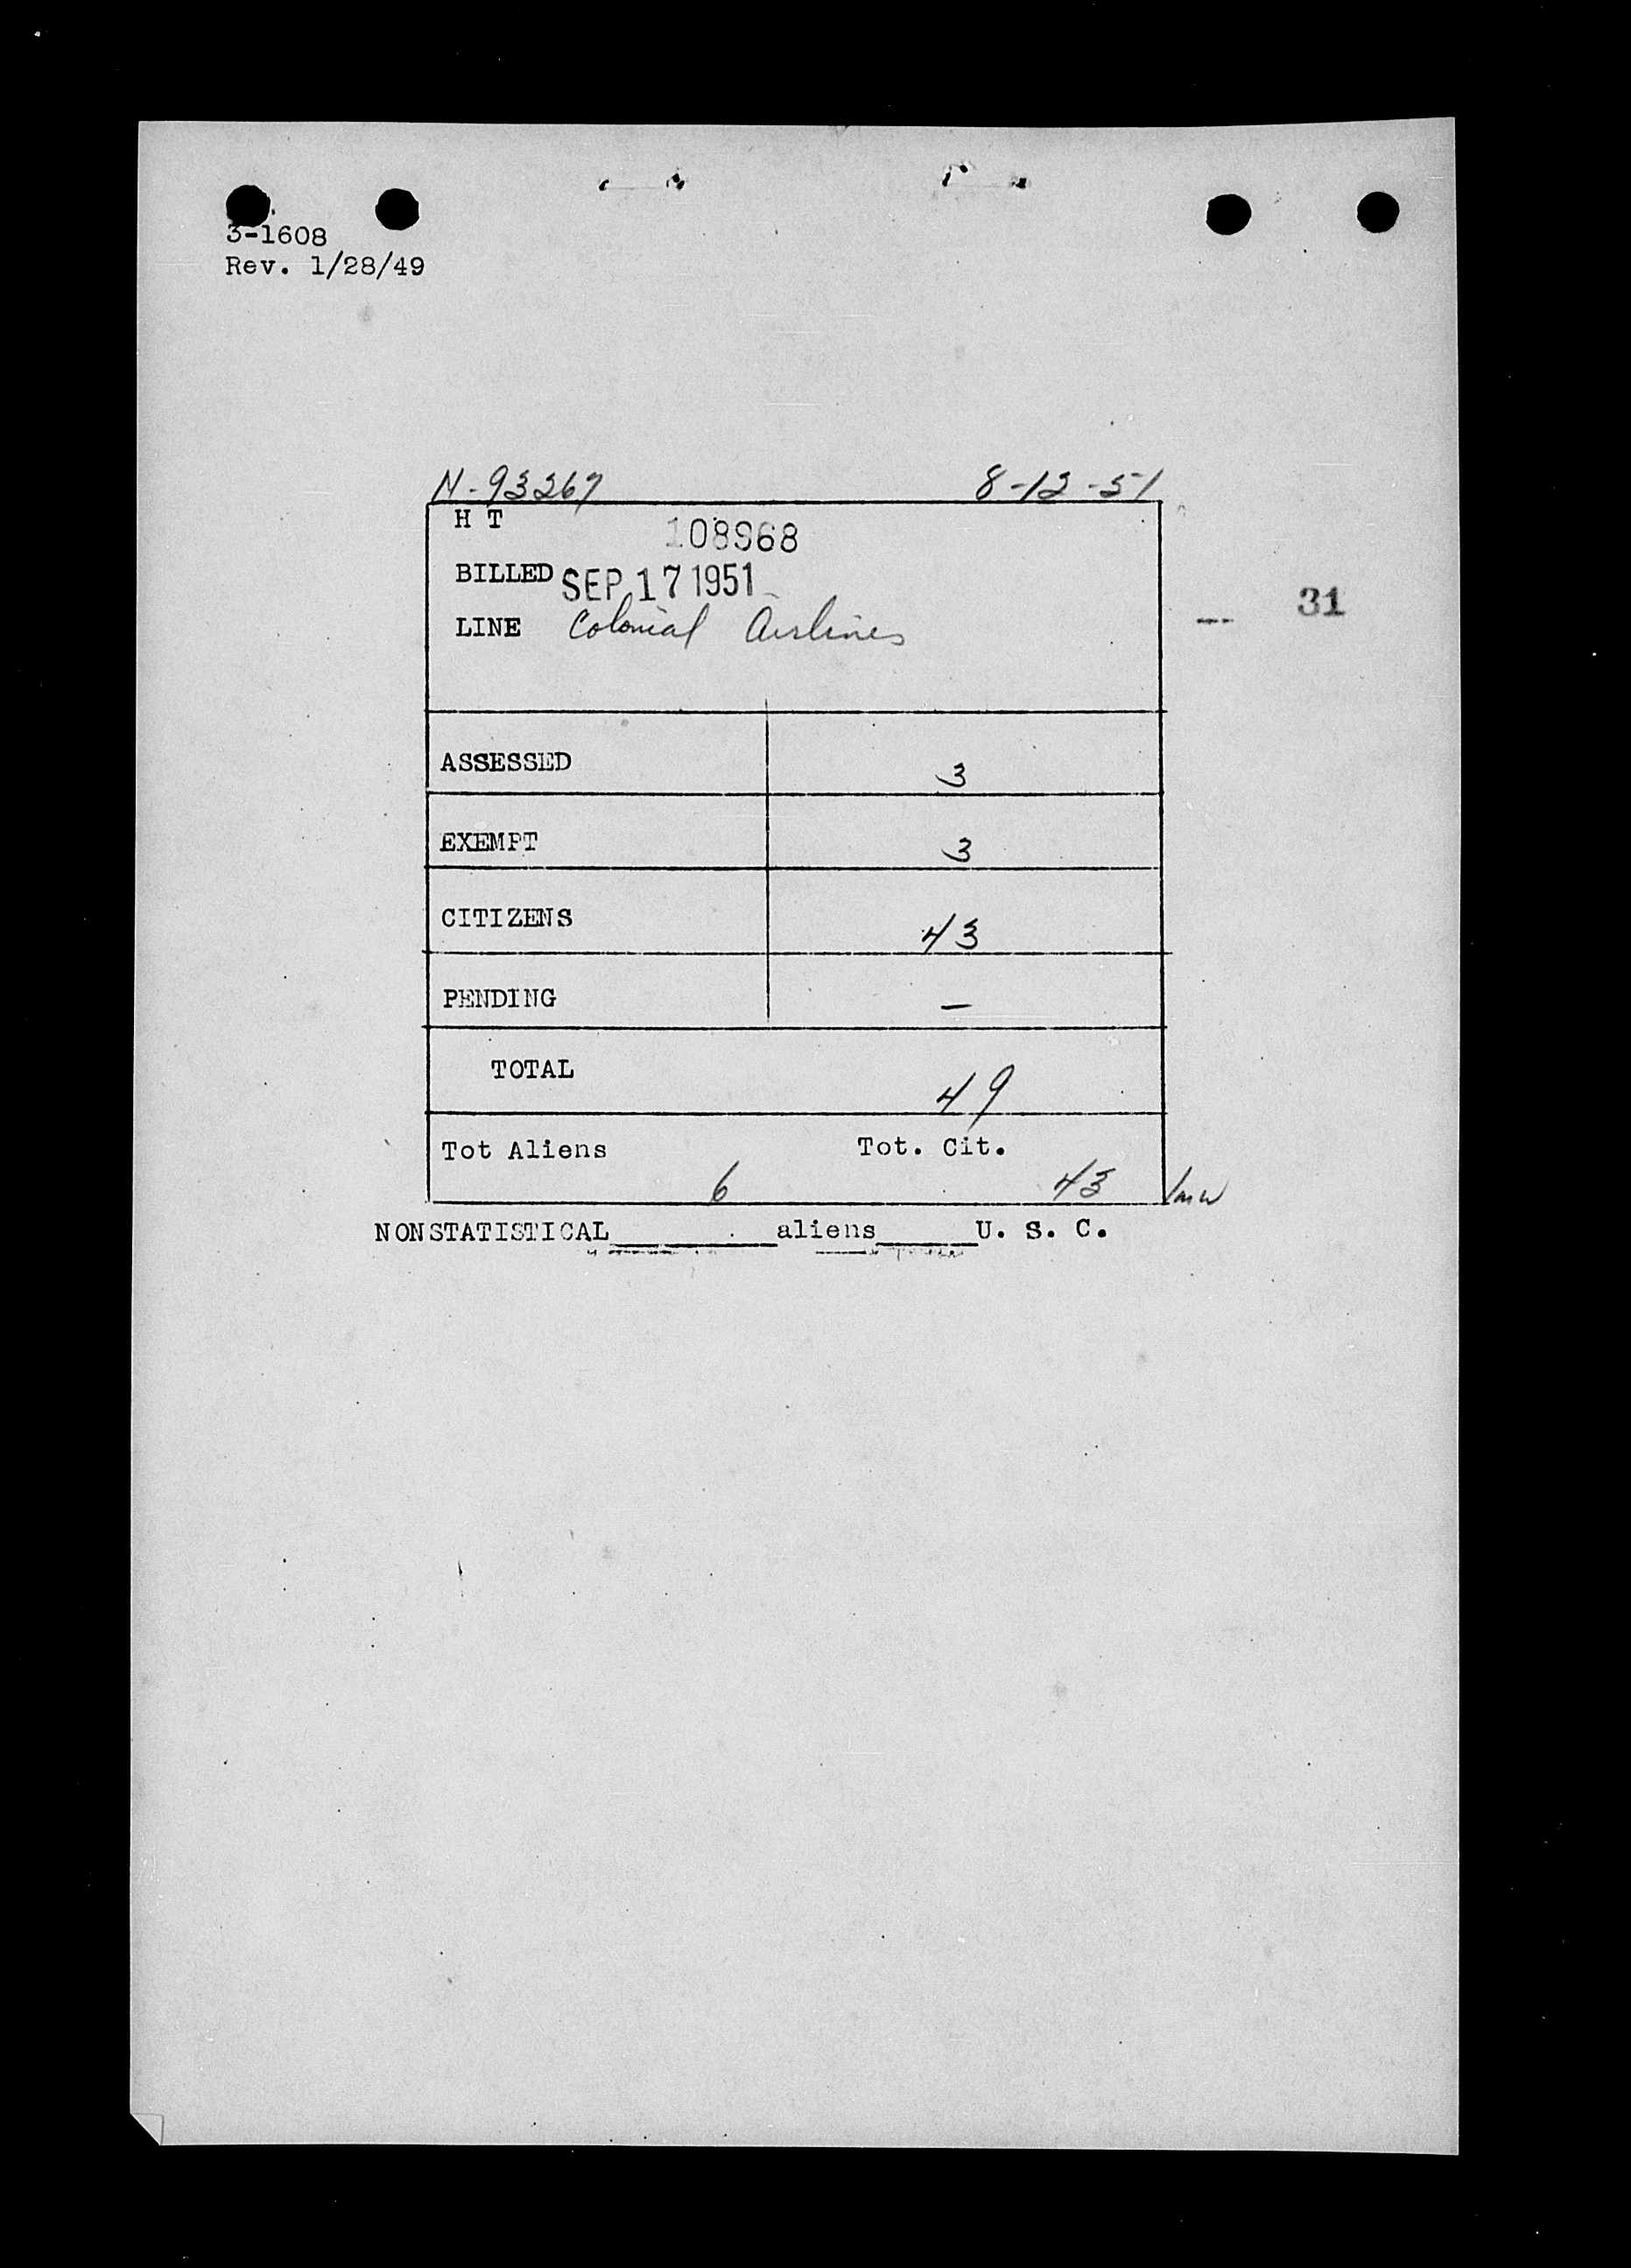 3-1608
Rev. 1/28/49
N-93267 8-12-51
H T 108968
BILLED SEP 17 1951
LINE Colonial Airlines
31
ASSESSED 3
EXEMPT 3
CITIZENS 43
PENDING —
TOTAL 49
Tot Aliens 6 Tot. Cit. 43
NONSTATISTICAL__________aliens______U. S. C.